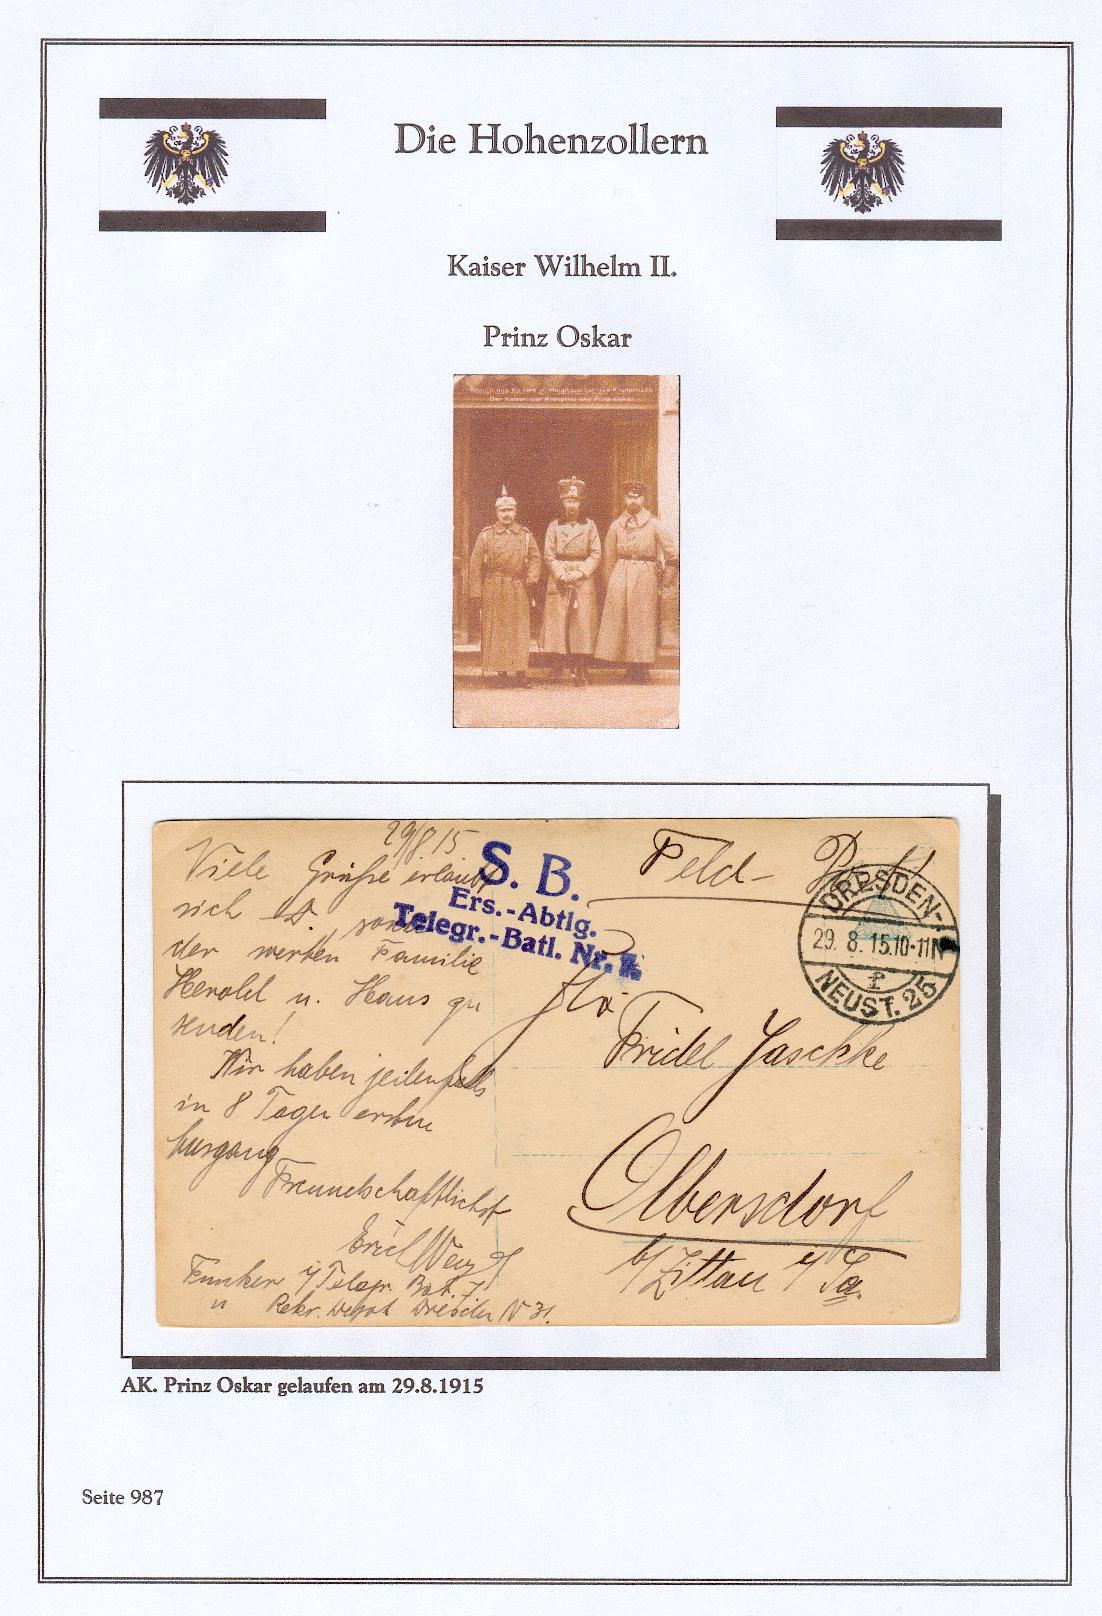 Die Hohenzollern
Kaiser Wilhelm II.
Prinz Oskar
Besuch des Kaisers im Hauptquartier des Kronprinzen
Der Kaiser, der Kronprinz und Prinz Oskar
29/8 15
Viele Grüße erlaubt
sich
der werten Familie
Herold u. Haus zu
senden!
Wir haben jedenfalls
in 8 Tagen ersten
Ausgang
Freundschaftlichst
Erich
Funker i/Telegr. Bat. 7
Rekr. Depot Dresden N 31.
S. B.
Ers.-Abtlg.
Telegr.-Batl. Nr. 7.
Feld- Post
DRESDEN-
29. 8. 15.10-11N
NEUST. 25
Fridel Jaschke
Olbersdorf
b/Zittau i/Sa.
AK. Prinz Oskar gelaufen am 29.8.1915
Seite 987